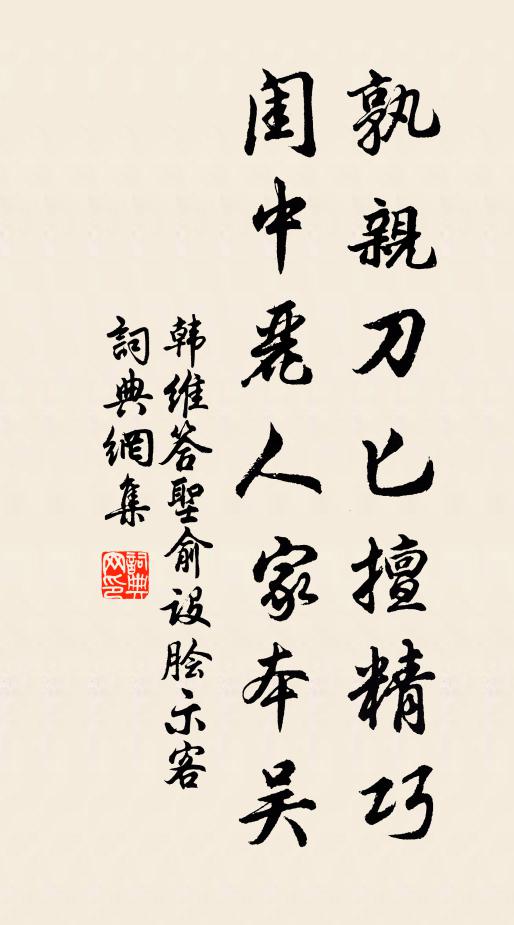 孰親刀匕擅精巧
闺中麗人家本吴
韩維答聖俞設脍示客
詞典網集
詞典网印